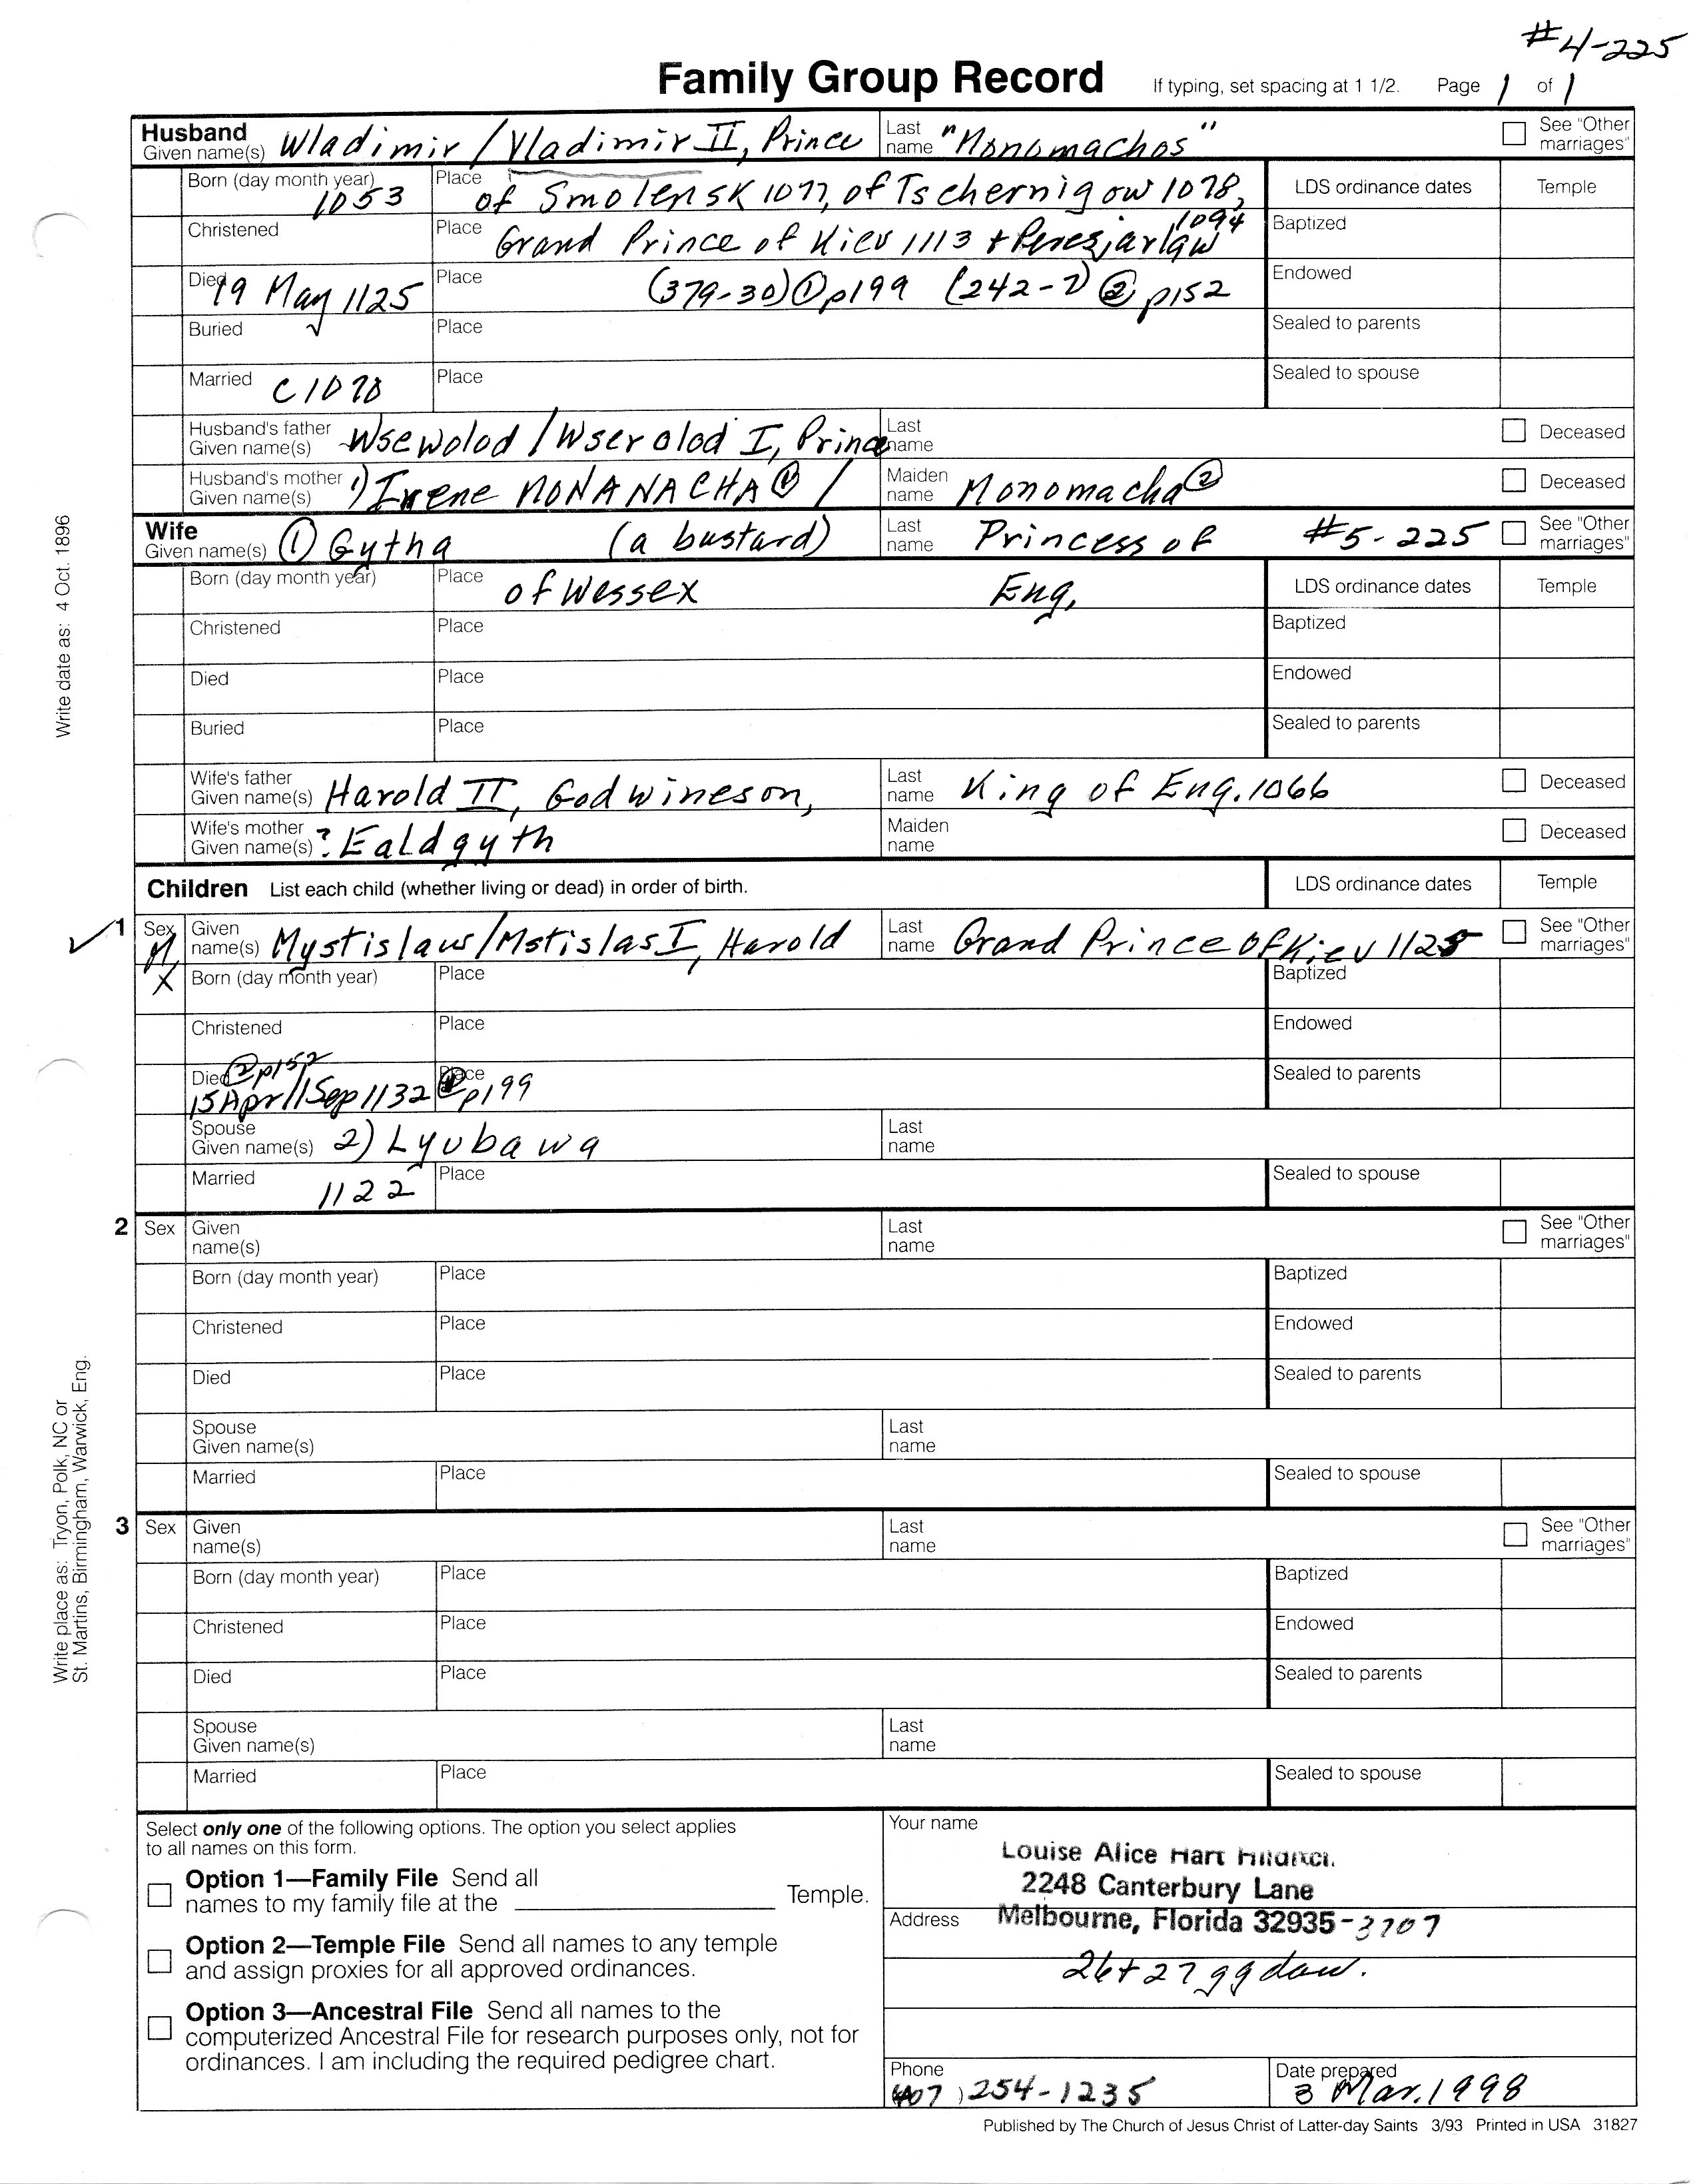 #4-225
Family Group Record If typing, set spacing at 1 1/2. Page 1 of 1
Husband
Given name(s) Wladimir/Vladimir II, Prince Last name "Monomachos" See "Other marriages"
Born (day month year) 1053 Place of Smolensk 1077, of Tschernigow 1078, LDS ordinance dates Temple
1094
Christened Place Grand Prince of Kiev 1113 + Peresjarlaw Baptized
Died 19 May 1125 Place (379-30)①p199 (242-7)② p152 Endowed
Buried Place Sealed to parents
Married C1070 Place Sealed to spouse
Husband's father
Given name(s) Wsewolod/Wserolod I, Prince Last name Deceased
Husband's mother
Given name(s) 1) Irene MONANACHA① / Maiden name Monomacha② Deceased
Wife
Given name(s) ① Gytha (a bustard) Last name Princess of #5-225 See "Other marriages"
Born (day month year) Place of Wessex Eng, LDS ordinance dates Temple
Christened Place Baptized
Died Place Endowed
Buried Place Sealed to parents
Wife's father
Given name(s) Harold II, Godwineson, Last name King of Eng. 1066 Deceased
Wife's mother
Given name(s) ? Ealdgyth Maiden name Deceased
Children List each child (whether living or dead) in order of birth. LDS ordinance dates Temple
1 Sex M Given name(s) Mystislaw/Mstislas I, Harold Last name Grand Prince of Kiev 1125 See "Other marriages"
X Born (day month year) Place Baptized
Christened Place Endowed
②p152
Died 15 Apr/1Sep 1132 Place p199 Sealed to parents
Spouse
Given name(s) 2) Lyubawa Last name
Married 1122 Place Sealed to spouse
2 Sex Given name(s) Last name See "Other marriages"
Born (day month year) Place Baptized
Christened Place Endowed
Died Place Sealed to parents
Spouse
Given name(s) Last name
Married Place Sealed to spouse
3 Sex Given name(s) Last name See "Other marriages"
Born (day month year) Place Baptized
Christened Place Endowed
Died Place Sealed to parents
Spouse
Given name(s) Last name
Married Place Sealed to spouse
Select only one of the following options. The option you select applies
to all names on this form.
Option 1—Family File Send all
names to my family file at the Temple.
Option 2—Temple File Send all names to any temple
and assign proxies for all approved ordinances.
Option 3—Ancestral File Send all names to the
computerized Ancestral File for research purposes only, not for
ordinances. I am including the required pedigree chart.
Your name
Louise Alice Hart
2248 Canterbury Lane
Address Melbourne, Florida 32935-3707
26+27 ggdau.
Phone (407) 254-1235 Date prepared 3 Mar. 1998
Published by The Church of Jesus Christ of Latter-day Saints 3/93 Printed in USA 31827
Write date as: 4 Oct. 1896
Write place as: Tryon, Polk, NC or
St. Martins, Birmingham, Warwick, Eng.